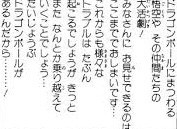 ドラゴンボールにまつわる
悟空と その仲間たちの
大活劇!
みなさんに お見せできるのは
ここまでで おしまいです…
これからも様々な
トラブルは たぶん
起こるでしょうが きっと
また なんとか乗り越えて
いくことでしょう…
だいじょうぶ
ドラゴンボールが
あるんだから……!